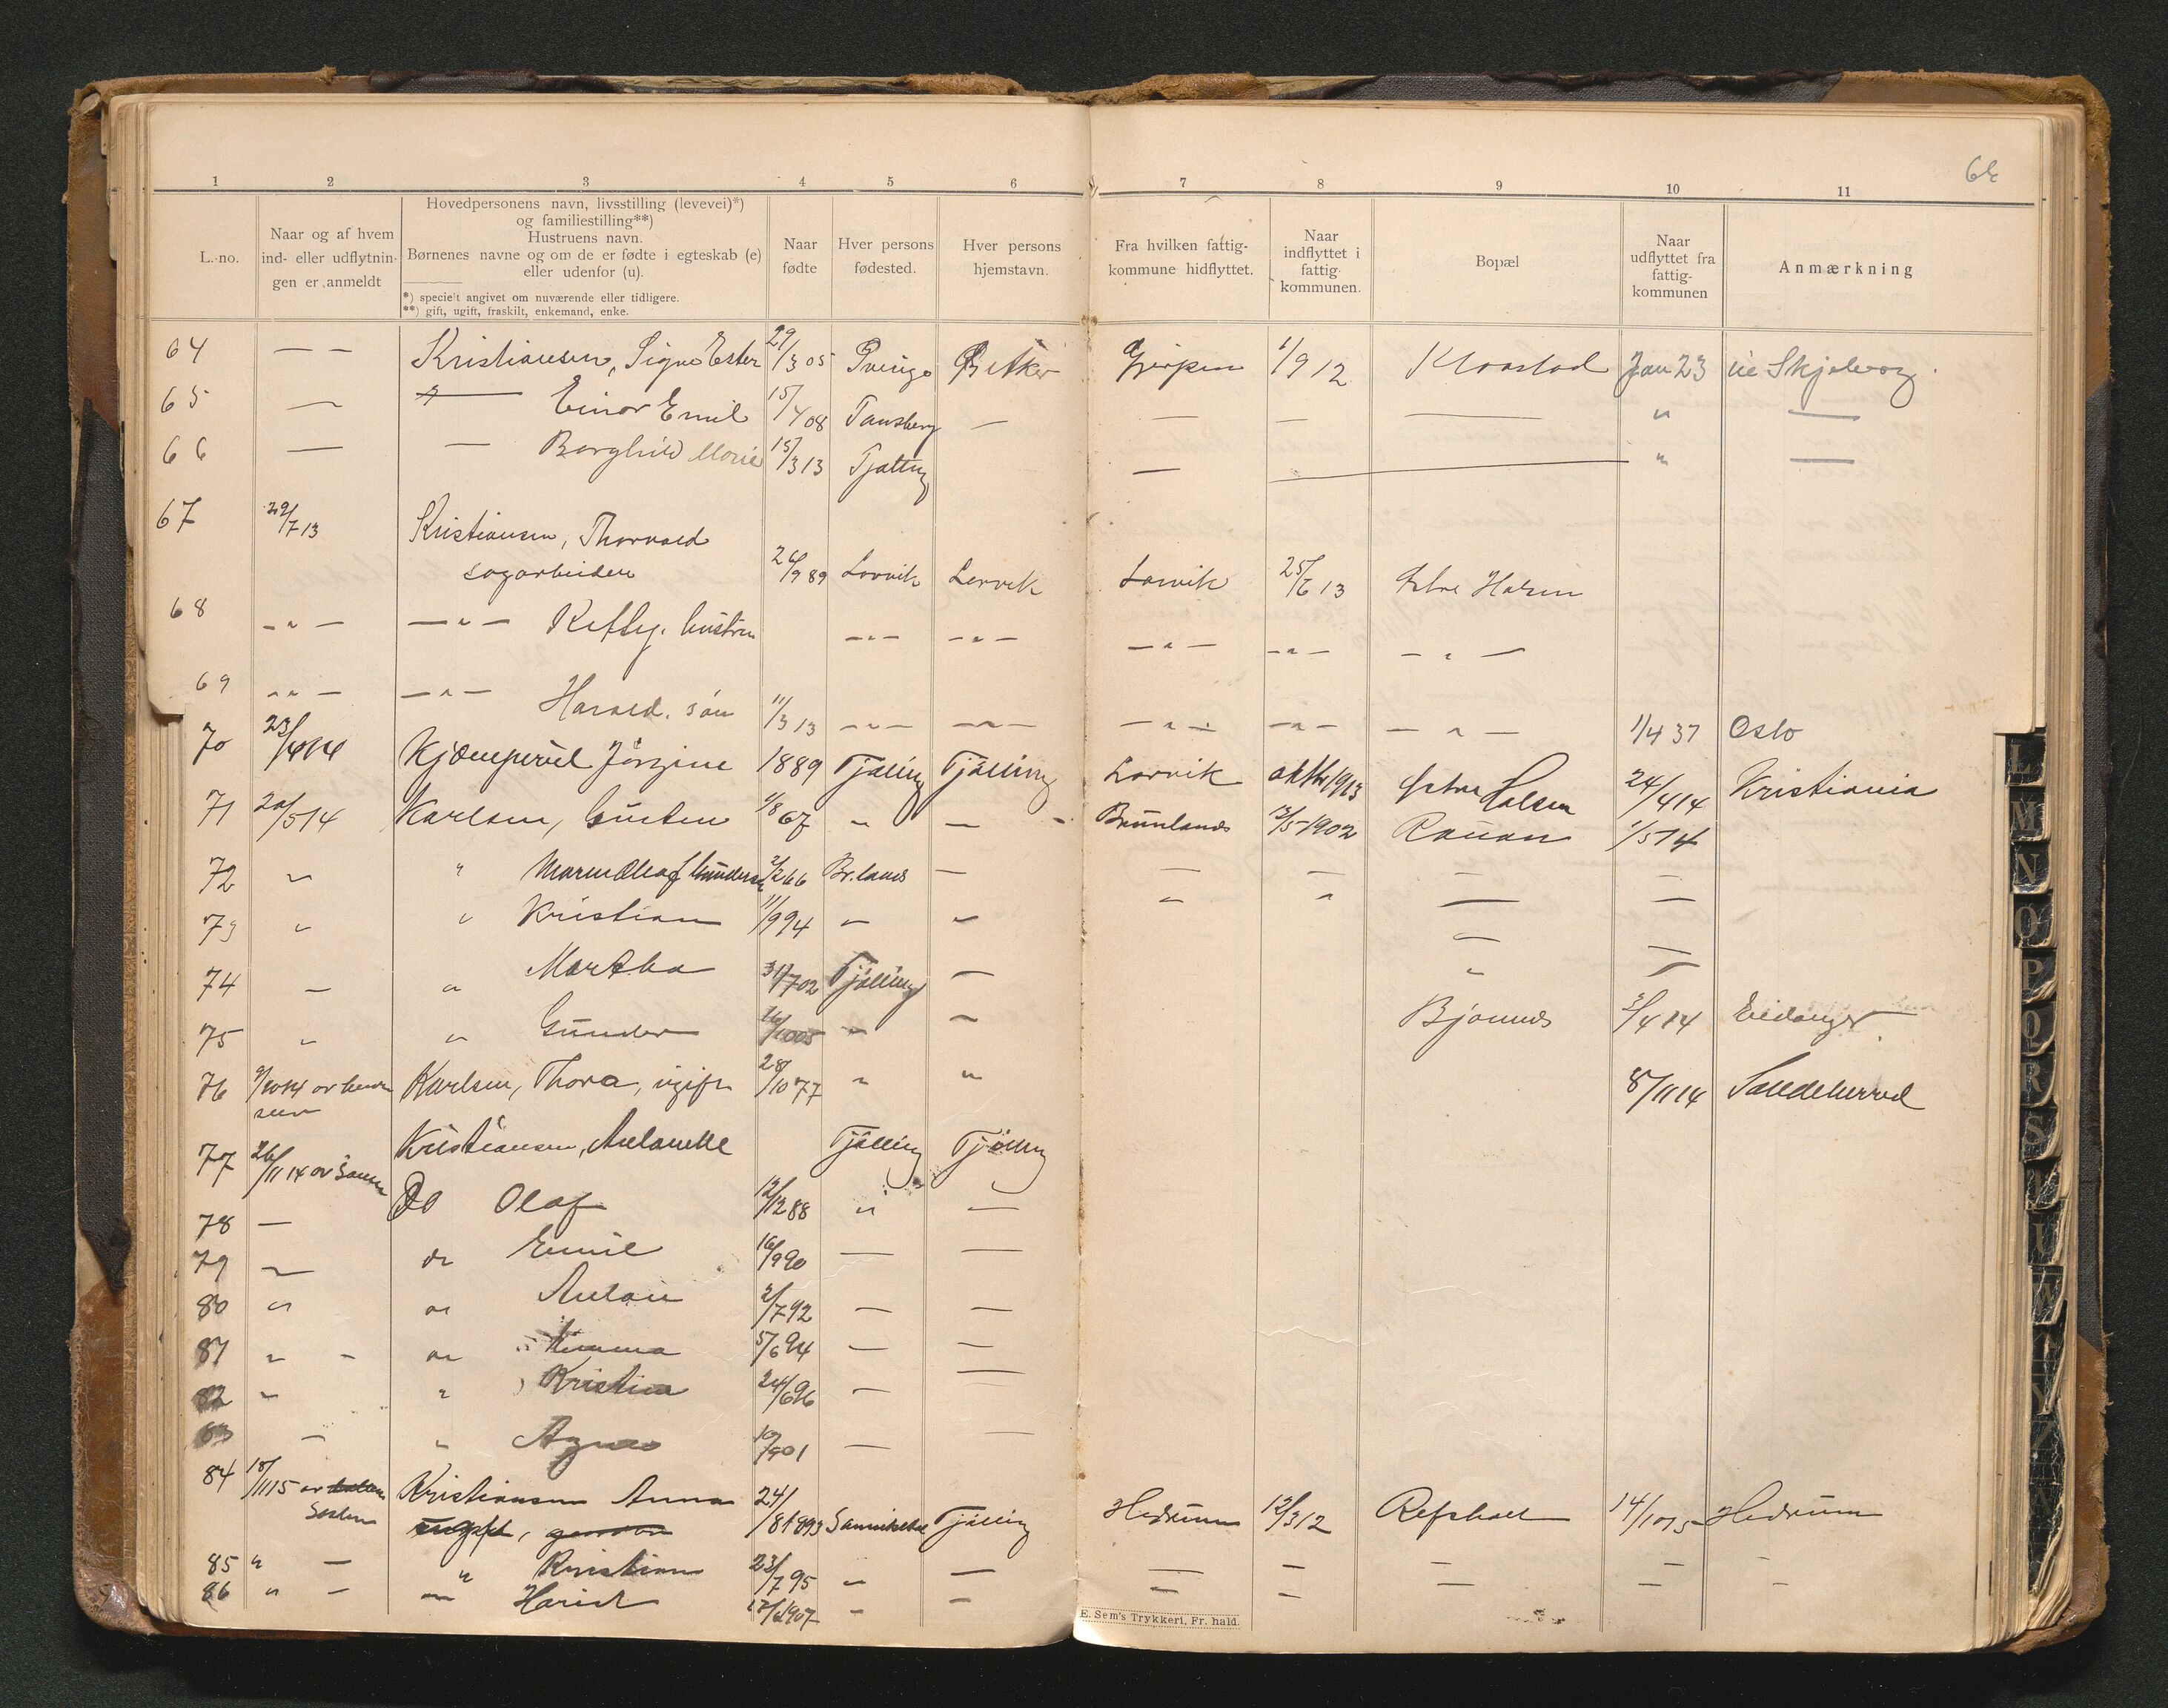 1 2 3 4 5 6 7 8 9 10 11
L.-no.
Naar og af hvem
ind- eller udflytnin-
gen er anmeldt
Hovedpersonens navn, livsstilling (levevei)*)
og familiestilling**)
Hustruens navn.
Børnenes navne og om de er fødte i egteskab (e)
eller udenfor (u).
*) specielt angivet om nuværende eller tidligere.
**) gift, ugift, fraskilt, enkemand, enke.
Naar
fødte
Hver persons
fødested.
Hver persons
hjemstavn.
Fra hvilken fattig-
kommune hidflyttet.
Naar
indflyttet i
fattig-
kommunen.
Bopæl
Naar
udflyttet fra
fattig-
kommunen
Anmærkning
64 — — Kristiansen, Signe Ester 29/3 05 Aker Gjerpen 1/9 12 Klaastad Jan 23 Skjeberg
65 — — Einar Emil 15/4 08 Tønsberg — — — — " —
66 — — Borghild Marie 15/3 13 Tjølling — — " —
67 29/7 13 Kristiansen, Thorvald
sagarbeider 26/9 89 Larvik Larvik Larvik 25/6 13 Østre Halsen
68 — " — — " — hustru — " — — " — — " — — " — — " —
69 — " — — " — Harald, søn 11/3 13 — " — — " — — " — — " — — " — 1/4 37 Oslo
70 23/4 14 Kjæmperud Jørgine 1889 Tjølling Tjølling Larvik oktbr 1913 Østre Halsen 24/4 14 Kristiania
71 20/5 14 Karlsen, Gusten 1/8 67 " — Brunlanes 12/5 1902 Rauan 1/5 14
72 " " Maren Oleaf Gundersen 2/2 66 Br.lanes — — — — —
73 " " Kristian 11/9 94 — " — " — —
74 — " Martha 31/7 02 Tjølling —
75 " " Gunder " — Bjønnes 3/4 14 Eidanger
76 Karlsen, Thora, ugift 28/10 77 " " 8/11 14 Sandeherred
77 26/11 14 Kristiansen, Antonette Tjølling Tjølling
78 — Do Olaf 12/12 88 " —
79 " do Emil 16/9 90 — —
80 " do Anton 2/7 92 — —
81 " - do 5/6 94 — —
82 " " Kristian 24/6 96 — —
83 — " Agnes 10/9 01 — —
84 Kristiansen Anna 24/8 1893 Tjølling Hedrum 12/3 12 Refsholt 14/10 15 Hedrum
ugift,
85 " — " Kristian 23/7 95 — — — — — — -
86 " — — 17/6 1907 — — — — — — -
E. Sem's Trykkeri, Fr. hald.
L
M
N
O
P
Q
R
S
T
U